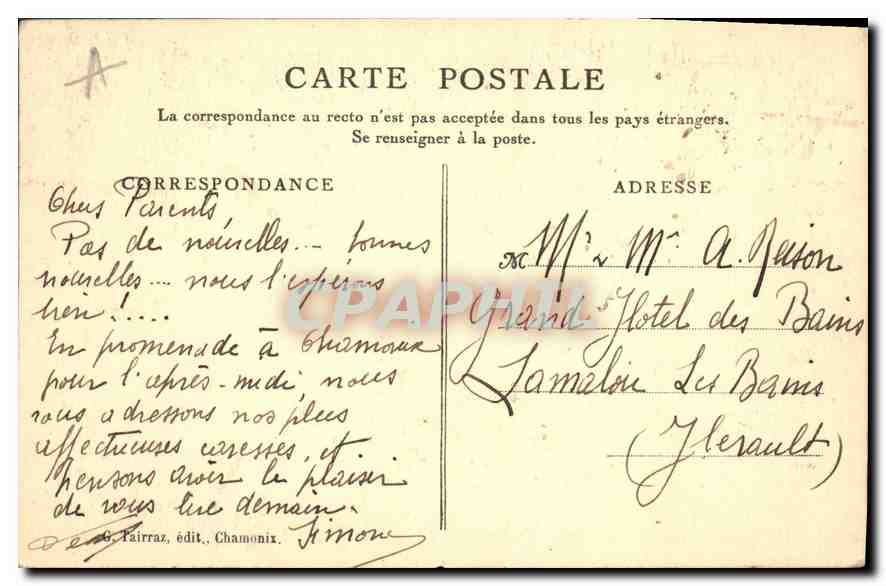 A
CARTE POSTALE
La correspondance au recto n'est pas acceptée dans tous les pays étrangers.
Se renseigner à la poste.
CORRESPONDANCE
Chers Parents,
Pas de nouvelles... bonnes
nouvelles... nous l'espérons
bien!....
En promenade à Chamonix
pour l'après-midi nous
vous adressons nos plus
affectueuses caresses, et
pensons avoir le plaisir
de vous lire demain.
Simone
G. Tairraz, édit., Chamonix.
ADRESSE
Mr & Me A. Reison
Grand Hotel des Bains
Lamalou Les Bains
(Herault)
CPAPHIL